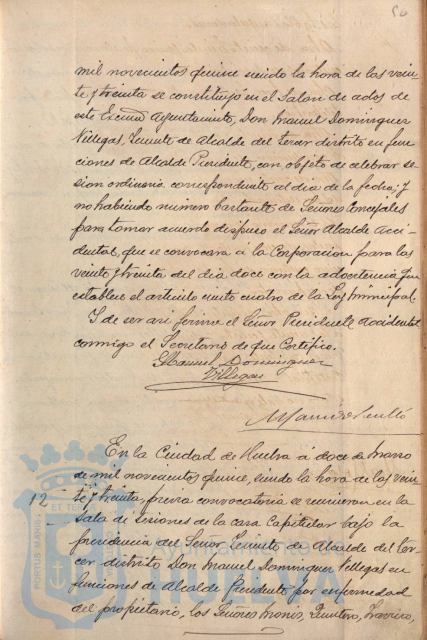 50
mil novecientos quince siendo la hora de las vein-
te y treinta se constituyó en el Salon de actos de
este Excmo Ayuntamiento, Don Manuel Dominguez
Villegas, Teniente de Alcalde del tercer distrito en fun-
ciones de Alcalde Presidente, con objeto de celebrar se-
sion ordinaria correspondiente al dia de la fecha; y
no habiendo numero bastante de Señores Concejales
para tomar acuerdo dispuso el Señor Alcalde Acci-
dental, que se convocara á la Corporacion para las
veinte y treinta del dia doce con la advertencia que
establece el articulo ciento cuatro de la Ley municipal.
Y de ser asi firma el Señor Presidente accidental
conmigo el Secretario de que Certifico.
Manuel Dominguez
Villegas
En la Ciudad de Huelva á doce de Marzo
de mil novecientos quince, siendo la hora de las vein-
12 te y treinta, previa convocatoria se reunieron en la
Sala de Sesiones de la casa Capitular bajo la
presidencia del Señor Teniente de Alcalde del ter-
cer distrito Don Manuel Dominguez Villegas en
funciones de Alcalde Presidente por enfermedad
del propietario, los Señores Quintero,
PORTUS MARIS ET TERRAE
Ayuntamiento de
HUELVA